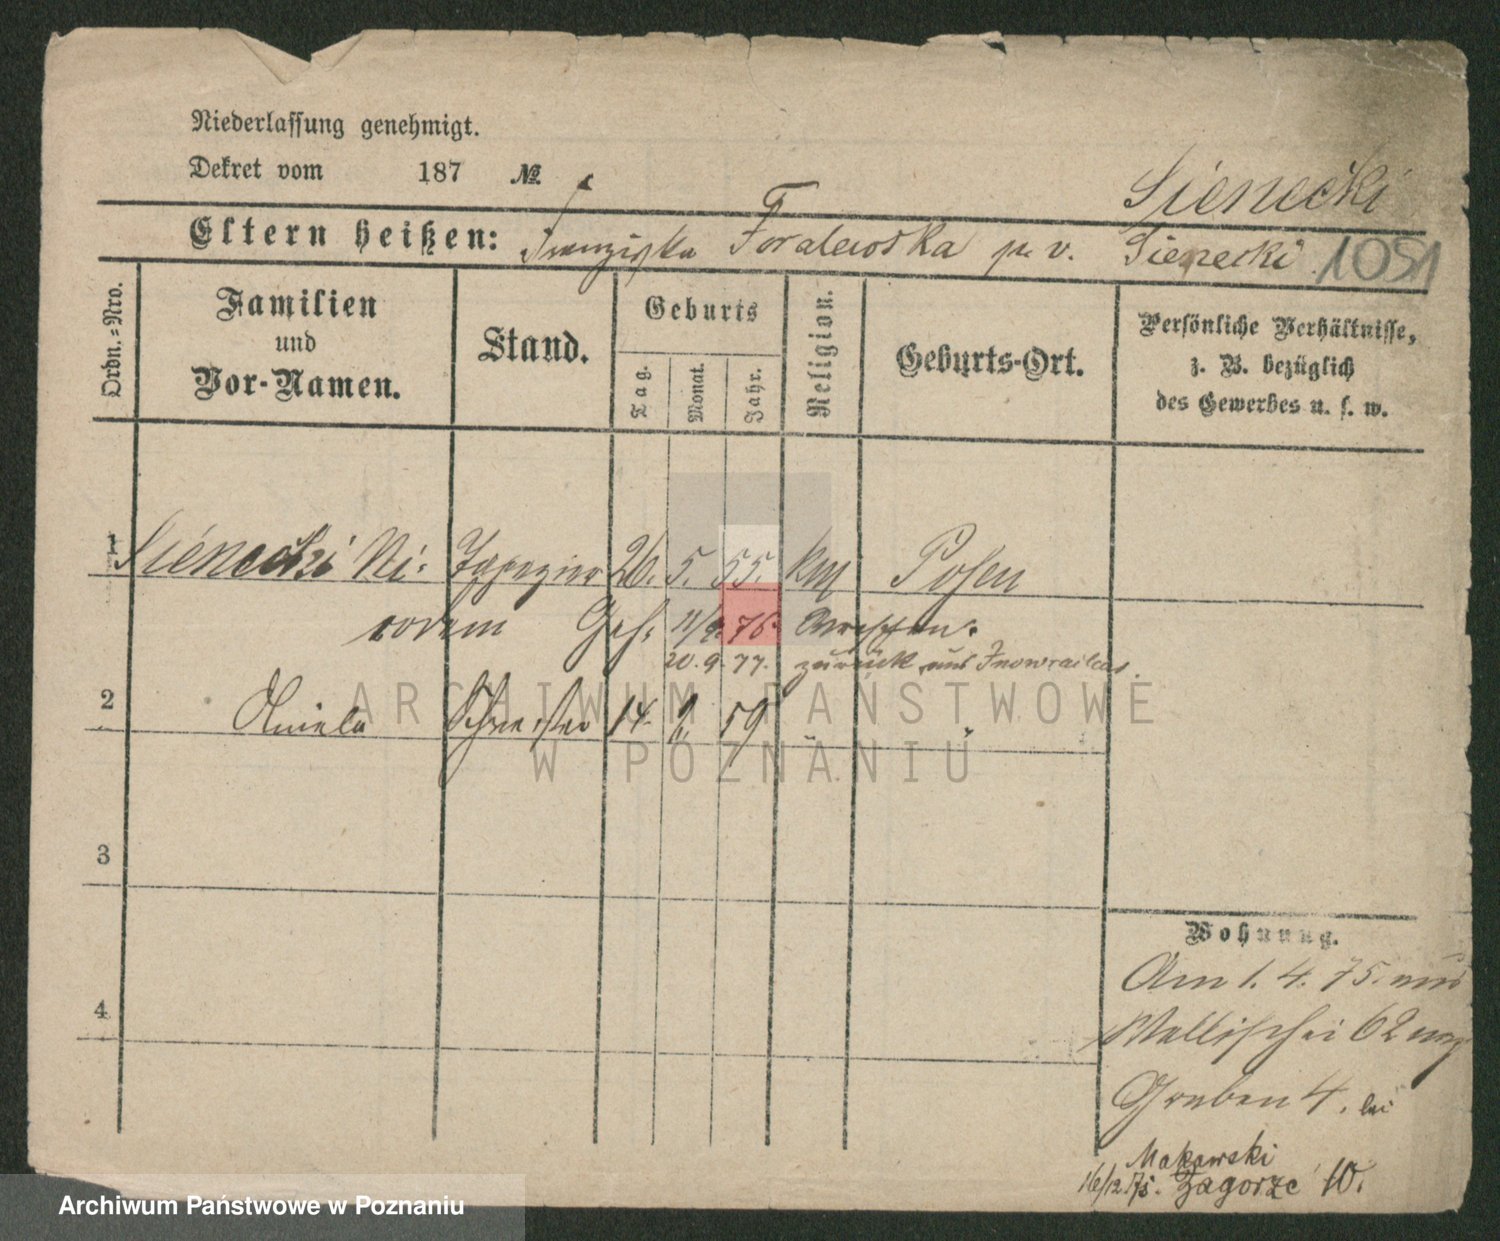 Niederlassung genehmigt.
Dekret vom 187 №
Sienecki
Eltern heißen: Franziska Foralewska p. v. Sienecki 1051
Ordn.=Nro.
Familien
und
Vor-Namen.
Stand.
Geburts
Tag.
Monat.
Jahr.
Religion.
Geburts-Ort.
Persönliche Verhältnisse,
z. B. bezüglich
des Gewerbes u. s. w.
1 Sienecki Ni- Tapezier 26. 5. 55. Posen
Geh. 76.
20. 9. 77. zurück aus
2 Aniela Schwester 14. 9. 59 "
3
4
Wohnung.
Am 1. 4. 75. aus
Wallischei 62
Graben 4. bei
Makowski
16/12.75. Zagorze 10.
ARCHIWUM PAŃSTWOWE
W POZNANIU
Archiwum Państwowe w Poznaniu